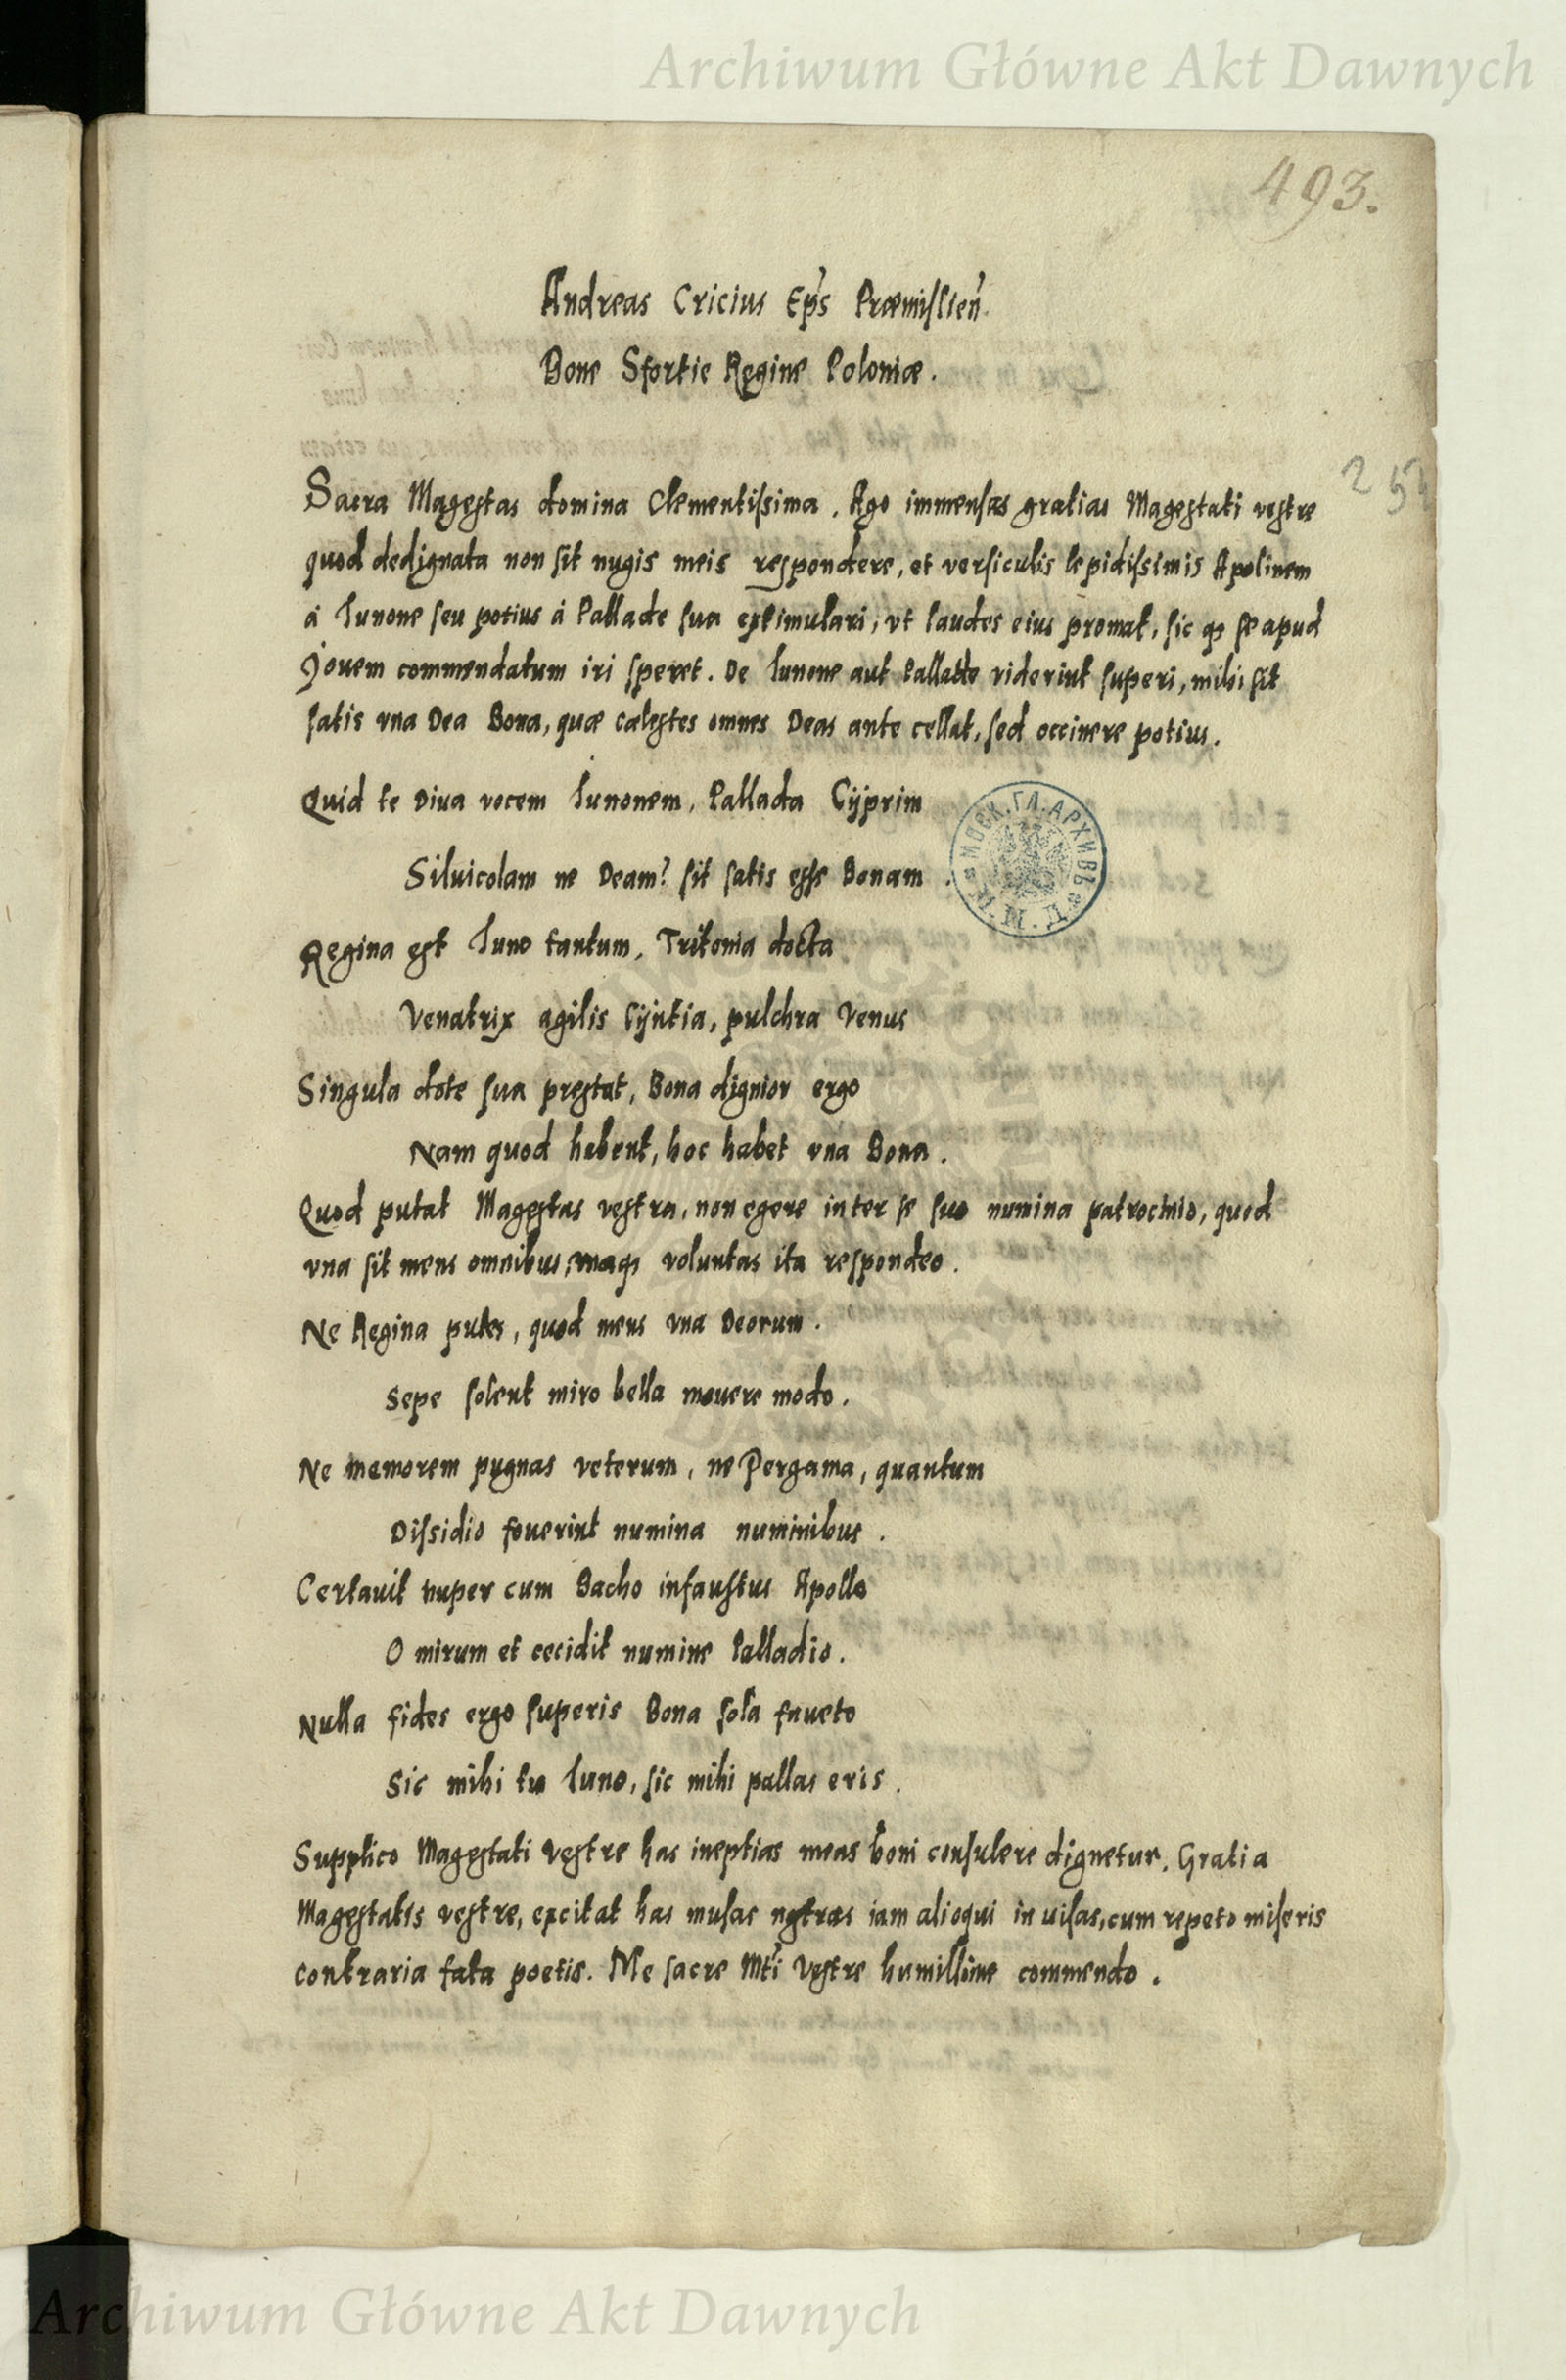 Archiwum Główne Akt Dawnych
493.
Andreas Cricius Ep̃s Præmislień.
Bone Sfortie Regine Poloniæ.
253
Sacra Magestas domina Clementissima. Ago immensas gratias Magestati vestre
quod dedignata non sit nugis meis respondere, et versiculis lepidissimis Apolinem
á Iunone seu potius á Pallade sua extimulari, vt laudes eius promat, sic qꝫ se apud
Jouem commendatum iri speret. De Iunone aut Pallade viderint superi, mihi sit
satis vna Dea Bona, quæ cælestes omnes Deas ante cellat, sed occinere potius.
Quid te Diua vocem Iunonem, Pallada Cyprim
Siluicolam ne Deam? sit satis esse Bonam.
МОСК. ГЛ. АРХИВЪ М. И. Д.
Regina est Iuno tantum, Tritonia docta
Venatrix agilis Cyntia, pulchra Venus
Singula dote sua prestat, Bona dignior ergo
Nam quod habent, hoc habet vna Bona.
Quod putat Magestas vestra, non egere inter se suo numina patrocinio, quod
vna sit mens omnibus, vnaqꝫ voluntas ita respondeo.
Ne Regina putes, quod mens vna Deorum.
Sepe solent miro bella mouere modo.
Ne memorem pugnas veterum, ne Pergama, quantum
Dissidio fouerint numina numinibus.
Certauit nuper cum Bacho infaustus Apollo
O mirum et cecidit numine Palladio.
Nulla fides ergo superis Bona sola faueto
Sic mihi tu Iuno, sic mihi pallas eris.
Supplico Magestati vestre has ineptias meas boni consulere dignetur. Gratia
Magestatis vestre, excitat has musas nostras iam alioqui in uisas, cum repeto miseris
contraria fata poetis. Me sacre Mti̇ Vestre humillime commendo.
Archiwum Główne Akt Dawnych